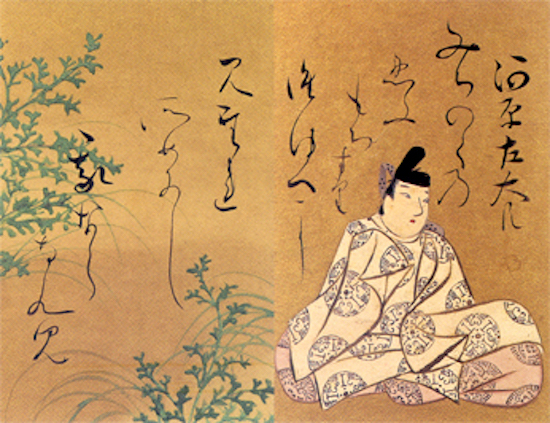 河原左大臣
みちのくの
忍ふ
もちすり
誰ゆへに
見たれ
そめにし
我なら
なくに